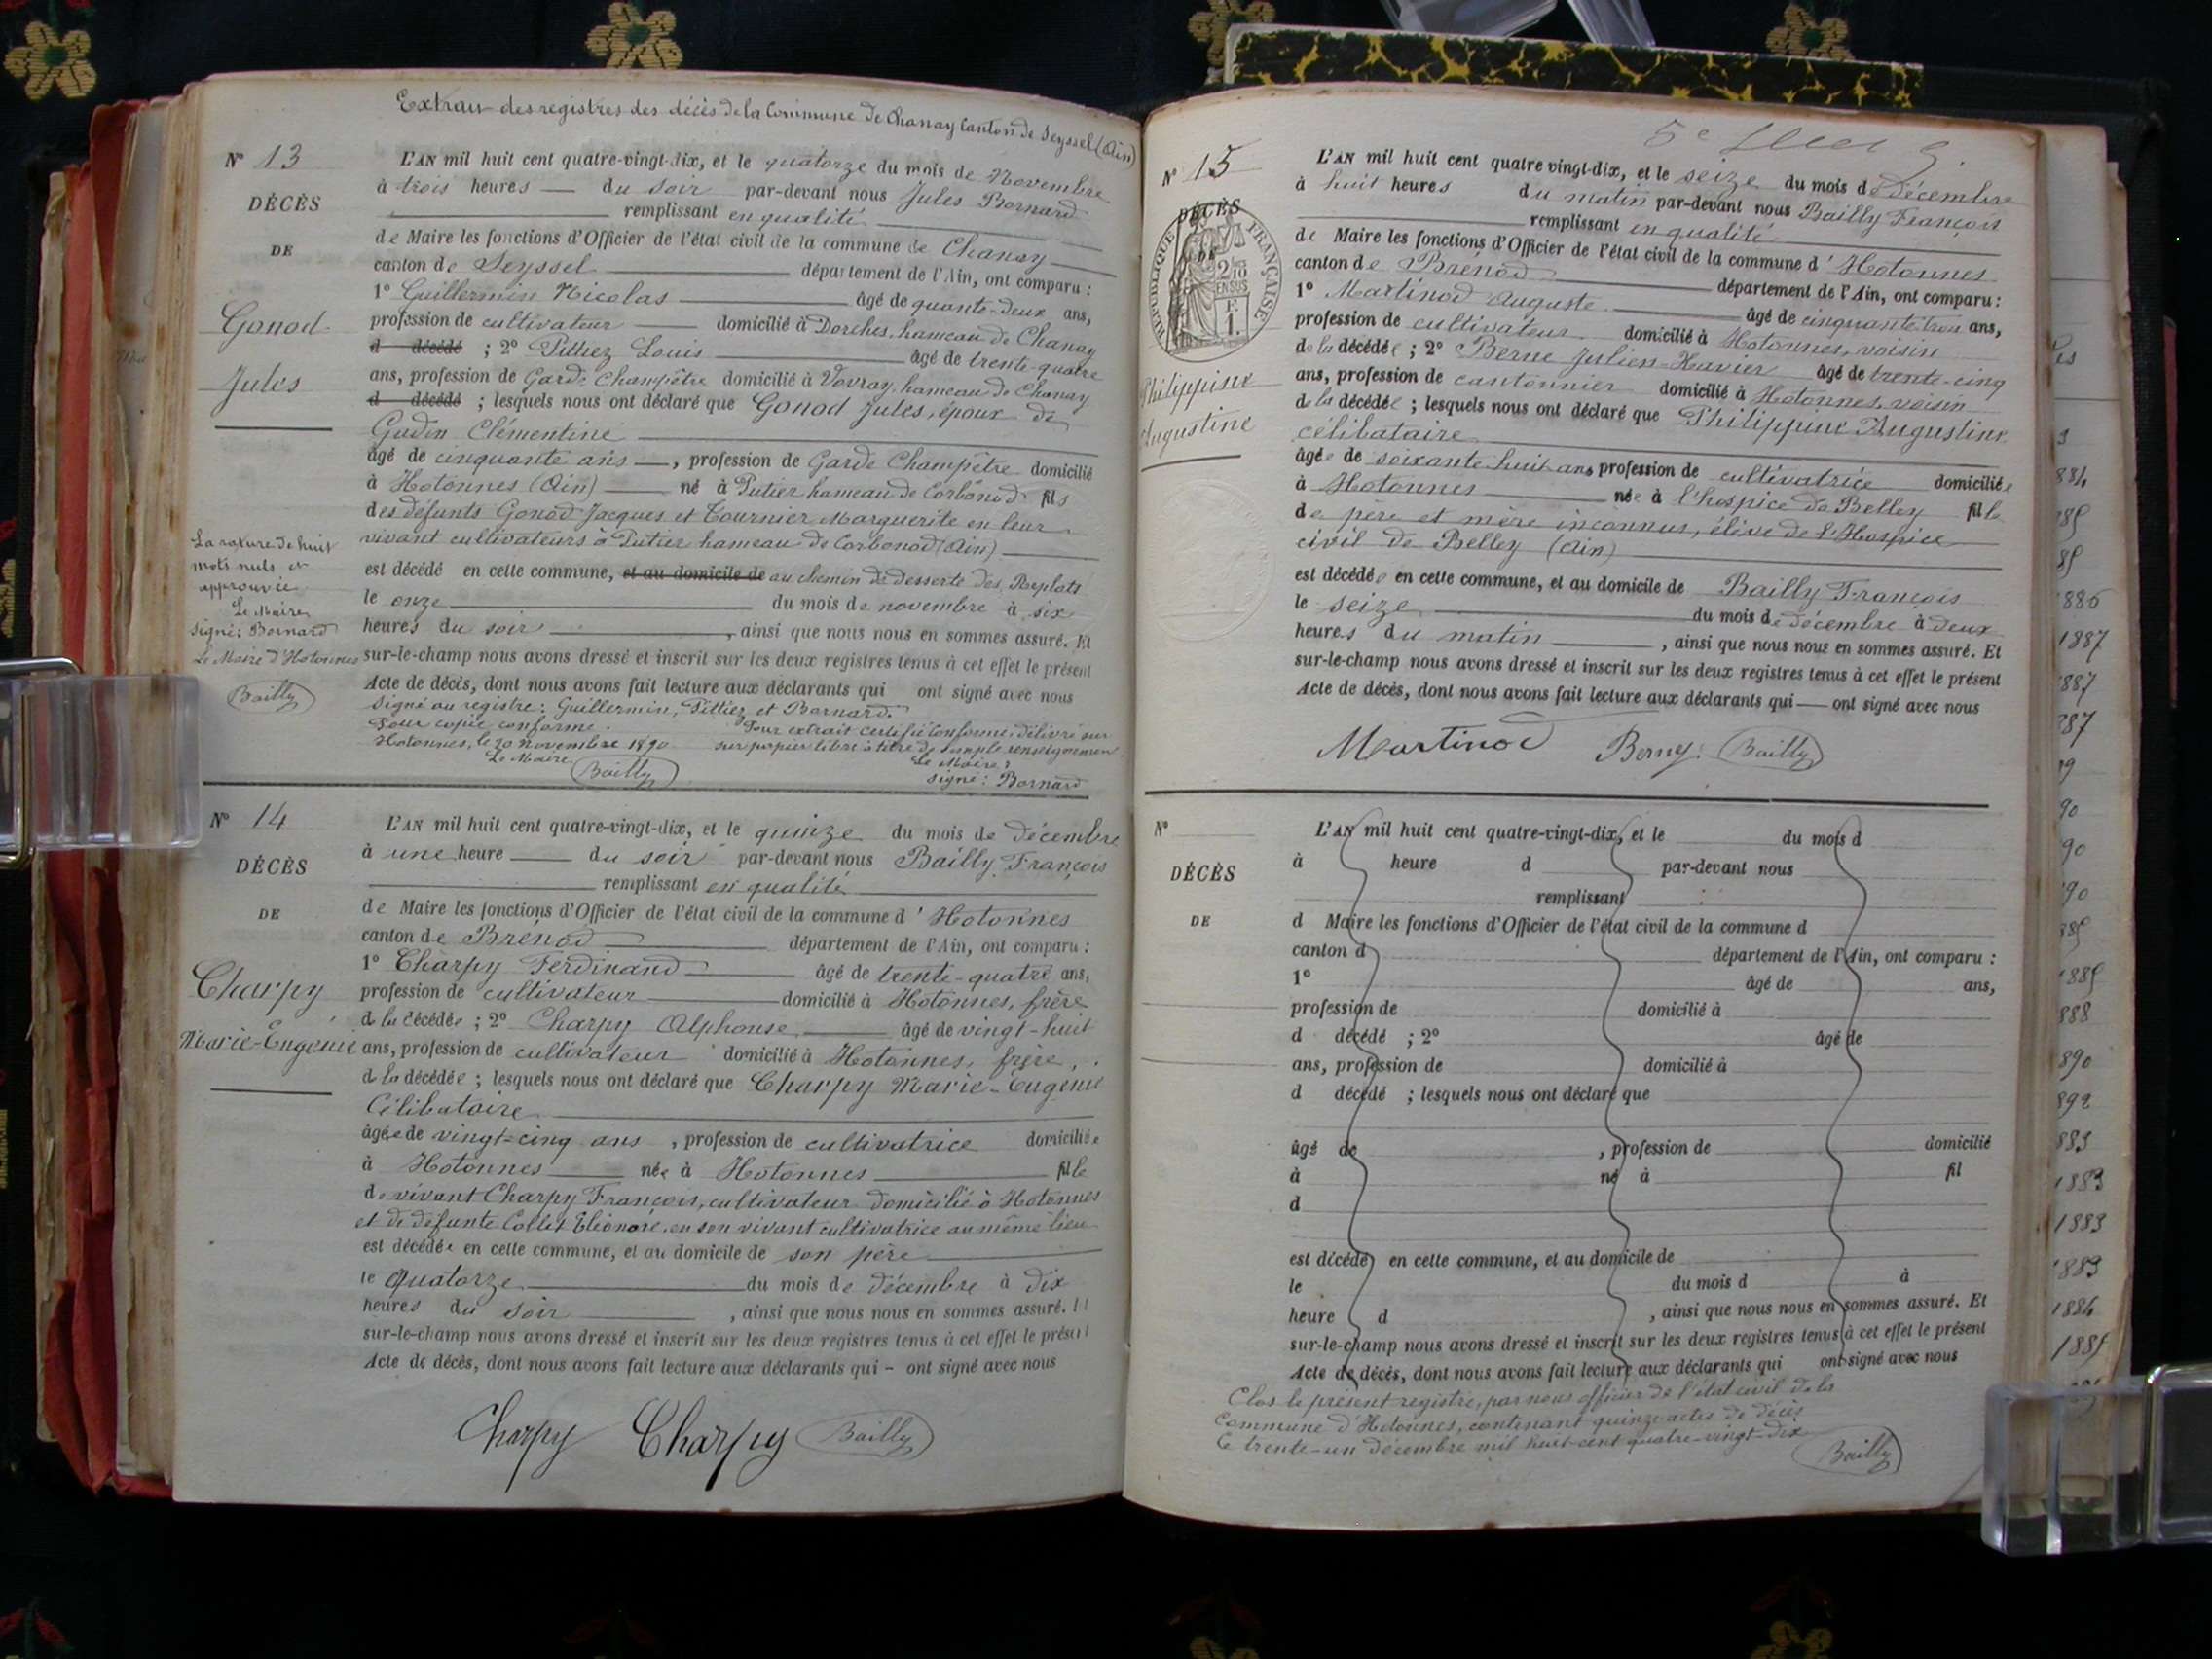 Extrait des registres des décès de la Commune de Chanay Canton de Seyssel (Ain)
N° 13
DÉCÈS
DE
Gonod
Jules
L'AN mil huit cent quatre-vingt-dix, et le quatorze du mois de Novembre
à trois heures du soir par-devant nous Jules Bornard
remplissant en qualité
de Maire les fonctions d'Officier de l'état civil de la commune de Chanay
canton de Seyssel département de l'Ain, ont comparu :
1° Guillermin Nicolas âgé de quante-deux ans,
profession de cultivateur domicilié à Dorches, hameau de Chanay
d décédé ; 2° Pilliez Louis âgé de trente-quatre
ans, profession de Garde Champêtre domicilié à Vovray, hameau de Chanay
d décédé ; lesquels nous ont déclaré que Gonod Jules, époux de
Godin Clémentine
âgé de cinquante ans, profession de Garde Champêtre domicilié
à Hotonnes (Ain) né à Putier hameau de Corbonod fils
des défunts Gonod Jacques et Tournier Marguerite en leur
vivant cultivateurs à Putier hameau de Corbonod (Ain)
est décédé en cette commune, et au domicile de au chemin de desserte des Replats
le onze du mois de novembre à six
heures du soir, ainsi que nous nous en sommes assuré. Et
sur-le-champ nous avons dressé et inscrit sur les deux registres tenus à cet effet le présent
Acte de décès, dont nous avons fait lecture aux déclarants qui ont signé avec nous
Signé au registre : Guillermin, Pilliez et Bornard.
Pour copie conforme.
Hotonnes, le 20 novembre 1890
Le Maire
Bailly
Pour extrait certifié conforme, délivré sur
sur papier libre à titre de simple renseignement
Le Maire,
signé : Bornard
La rature de huit
mots nuls est
approuvée
Le Maire
signé : Bornard
Le Maire d'Hotonnes
Bailly
N° 14
DÉCÈS
DE
Charpy
Marie-Eugénie
L'AN mil huit cent quatre-vingt-dix, et le quinze du mois de Décembre
à une heure du soir par-devant nous Bailly François
remplissant en qualité
de Maire les fonctions d'Officier de l'état civil de la commune d'Hotonnes
canton de Brénod département de l'Ain, ont comparu :
1° Charpy Ferdinand âgé de trente-quatre ans,
profession de cultivateur domicilié à Hotonnes, frère
de la décédée ; 2° Charpy Alphonse, âgé de vingt-huit
ans, profession de cultivateur domicilié à Hotonnes, frère,
de la décédée ; lesquels nous ont déclaré que Charpy Marie-Eugénie
Célibataire
âgée de vingt-cinq ans, profession de cultivatrice domiciliée
à Hotonnes née à Hotonnes fille
de vivant Charpy François, cultivateur domicilié à Hotonnes
et de défunte Collet Eléonore, en son vivant cultivatrice au même lieu
est décédée en cette commune, et au domicile de son père
le quatorze du mois de décembre à dix
heures du soir, ainsi que nous nous en sommes assuré. Et
sur-le-champ nous avons dressé et inscrit sur les deux registres tenus à cet effet le présent
Acte de décès, dont nous avons fait lecture aux déclarants qui - ont signé avec nous
Charpy Charpy Bailly
N° 15
DÉCÈS
DE
RÉPUBLIQUE FRANÇAISE
2/10 EN SUS
F. 1.
Philippine
Augustine
L'AN mil huit cent quatre vingt-dix, et le seize du mois de décembre
à huit heures du matin par-devant nous Bailly François
remplissant en qualité
de Maire les fonctions d'Officier de l'état civil de la commune d'Hotonnes
canton de Brénod département de l'Ain, ont comparu :
1° Martinod Auguste âgé de cinquante trois ans,
profession de cultivateur domicilié à Hotonnes, voisin
de la décédée ; 2° Berne Julien-Xavier âgé de trente-cinq
ans, profession de cantonnier domicilié à Hotonnes, voisin
de la décédée ; lesquels nous ont déclaré que Philippine Augustine
célibataire
âgée de soixante huit ans profession de cultivatrice domiciliée
à Hotonnes née à l'hospice de Belley fille
de père et mère inconnus, élève de l'Hospice
civil de Belley (Ain)
est décédée en cette commune, et au domicile de Bailly François
le seize du mois de décembre à deux
heures du matin, ainsi que nous nous en sommes assuré. Et
sur-le-champ nous avons dressé et inscrit sur les deux registres tenus à cet effet le présent
Acte de décès, dont nous avons fait lecture aux déclarants qui ont signé avec nous
Martinod Berne Bailly
N°
DÉCÈS
DE
L'AN mil huit cent quatre-vingt-dix, et le du mois d
à heure d par-devant nous
remplissant
d Maire les fonctions d'Officier de l'état civil de la commune d
canton d département de l'Ain, ont comparu :
1° âgé de ans,
profession de domicilié à
d décédé ; 2° âgé de
ans, profession de domicilié à
d décédé ; lesquels nous ont déclaré que
âgé de , profession de domicilié
à né à fil
d
est décédé en cette commune, et au domicile de
le du mois d à
heure d , ainsi que nous nous en sommes assuré. Et
sur-le-champ nous avons dressé et inscrit sur les deux registres tenus à cet effet le présent
Acte de décès, dont nous avons fait lecture aux déclarants qui ont signé avec nous
Clos le présent registre, par nous officier de l'état civil de la
Commune d'Hotonnes, contenant quinze actes de décès
le trente-un décembre mil huit-cent quatre-vingt-dix
Bailly
1887
1885
888
890
892
883
1883
1883
1883
1884
1885